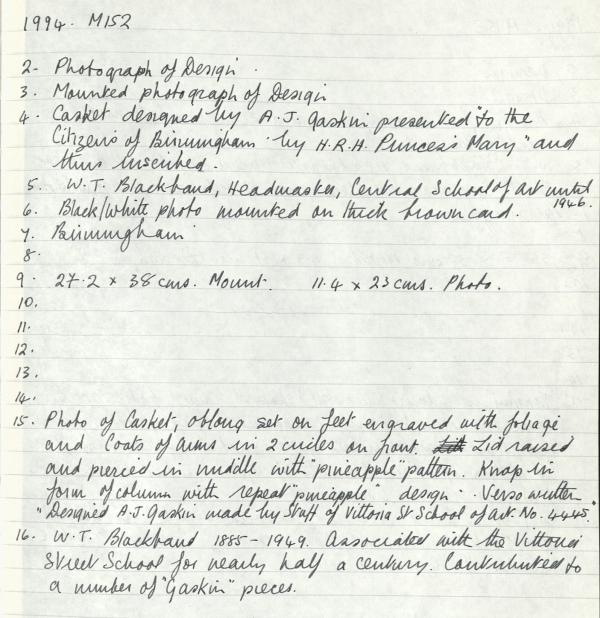 1994. M152
2. Photograph of Design.
3. Mounted photograph of Design
4. Casket designed by A.J. Gaskin presented "to the
Citizens of Birmingham by H.R.H. Princess Mary" and
thus inscribed.
5. W.T. Blackband, Headmaster, Central School of Art until
1946.
6. Black/White photo mounted on thick brown card.
7. Birmingham
8.
9. 27.2 x 38 cms. Mount. 11.4 x 23 cms. Photo.
10.
11.
12.
13.
14.
15. Photo of Casket, oblong set on feet engraved with foliage
and Coats of Arms in 2 circles on front. Lid raised
and pierced in middle with "pineapple" pattern. Knap in
form of column with repeat "pineapple" design. Verso written
"Designed A.J. Gaskin made by Staff of Vittoria St School of Art No. 4445."
16. W.T. Blackband 1885-1949. Associated with the Vittoria
Street School for nearly half a century. Contributed to
a number of "Gaskin" pieces.